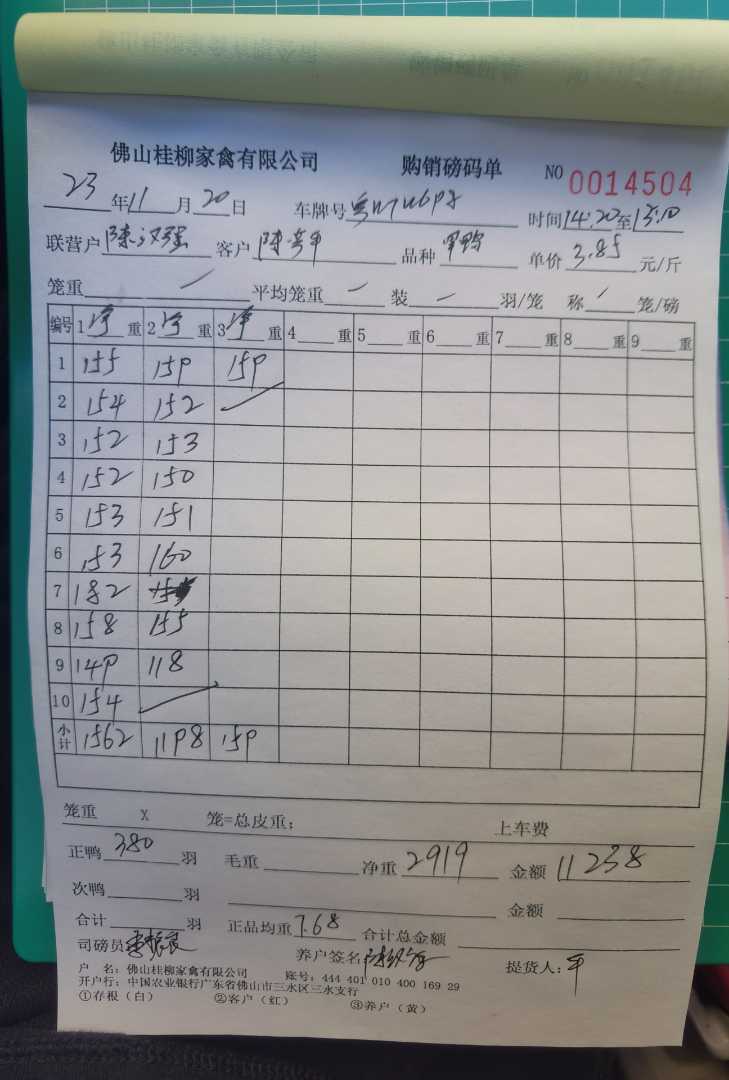 佛山桂柳家禽有限公司 购销磅码单 NO 0014504
23年11月20日 车牌号 时间14:20至15:10
联营户陈汉强 客户陈 品种 单价3.85元/斤
笼重 平均笼重 装 羽/笼 称 笼/磅
编号 1净重 2净重 3净重 4重 5重 6重 7重 8重 9重
1 155 159 159
2 154 152
3 152 153
4 152 150
5 153 151
6 153 160
7 182
8 158 155
9 149 118
10 154
小计 1562 1198 159
笼重 X 笼=总皮重: 上车费
正鸭380羽 毛重 净重2919 金额11238
次鸭 羽 金额
合计 羽 正品均重7.68 合计总金额
司磅员 养户签名 提货人:平
户 名: 佛山桂柳家禽有限公司 账号: 444 401 010 400 169 29
开户行: 中国农业银行广东省佛山市三水区三水支行
①存根(白) ②客户(红) ③养户(黄)